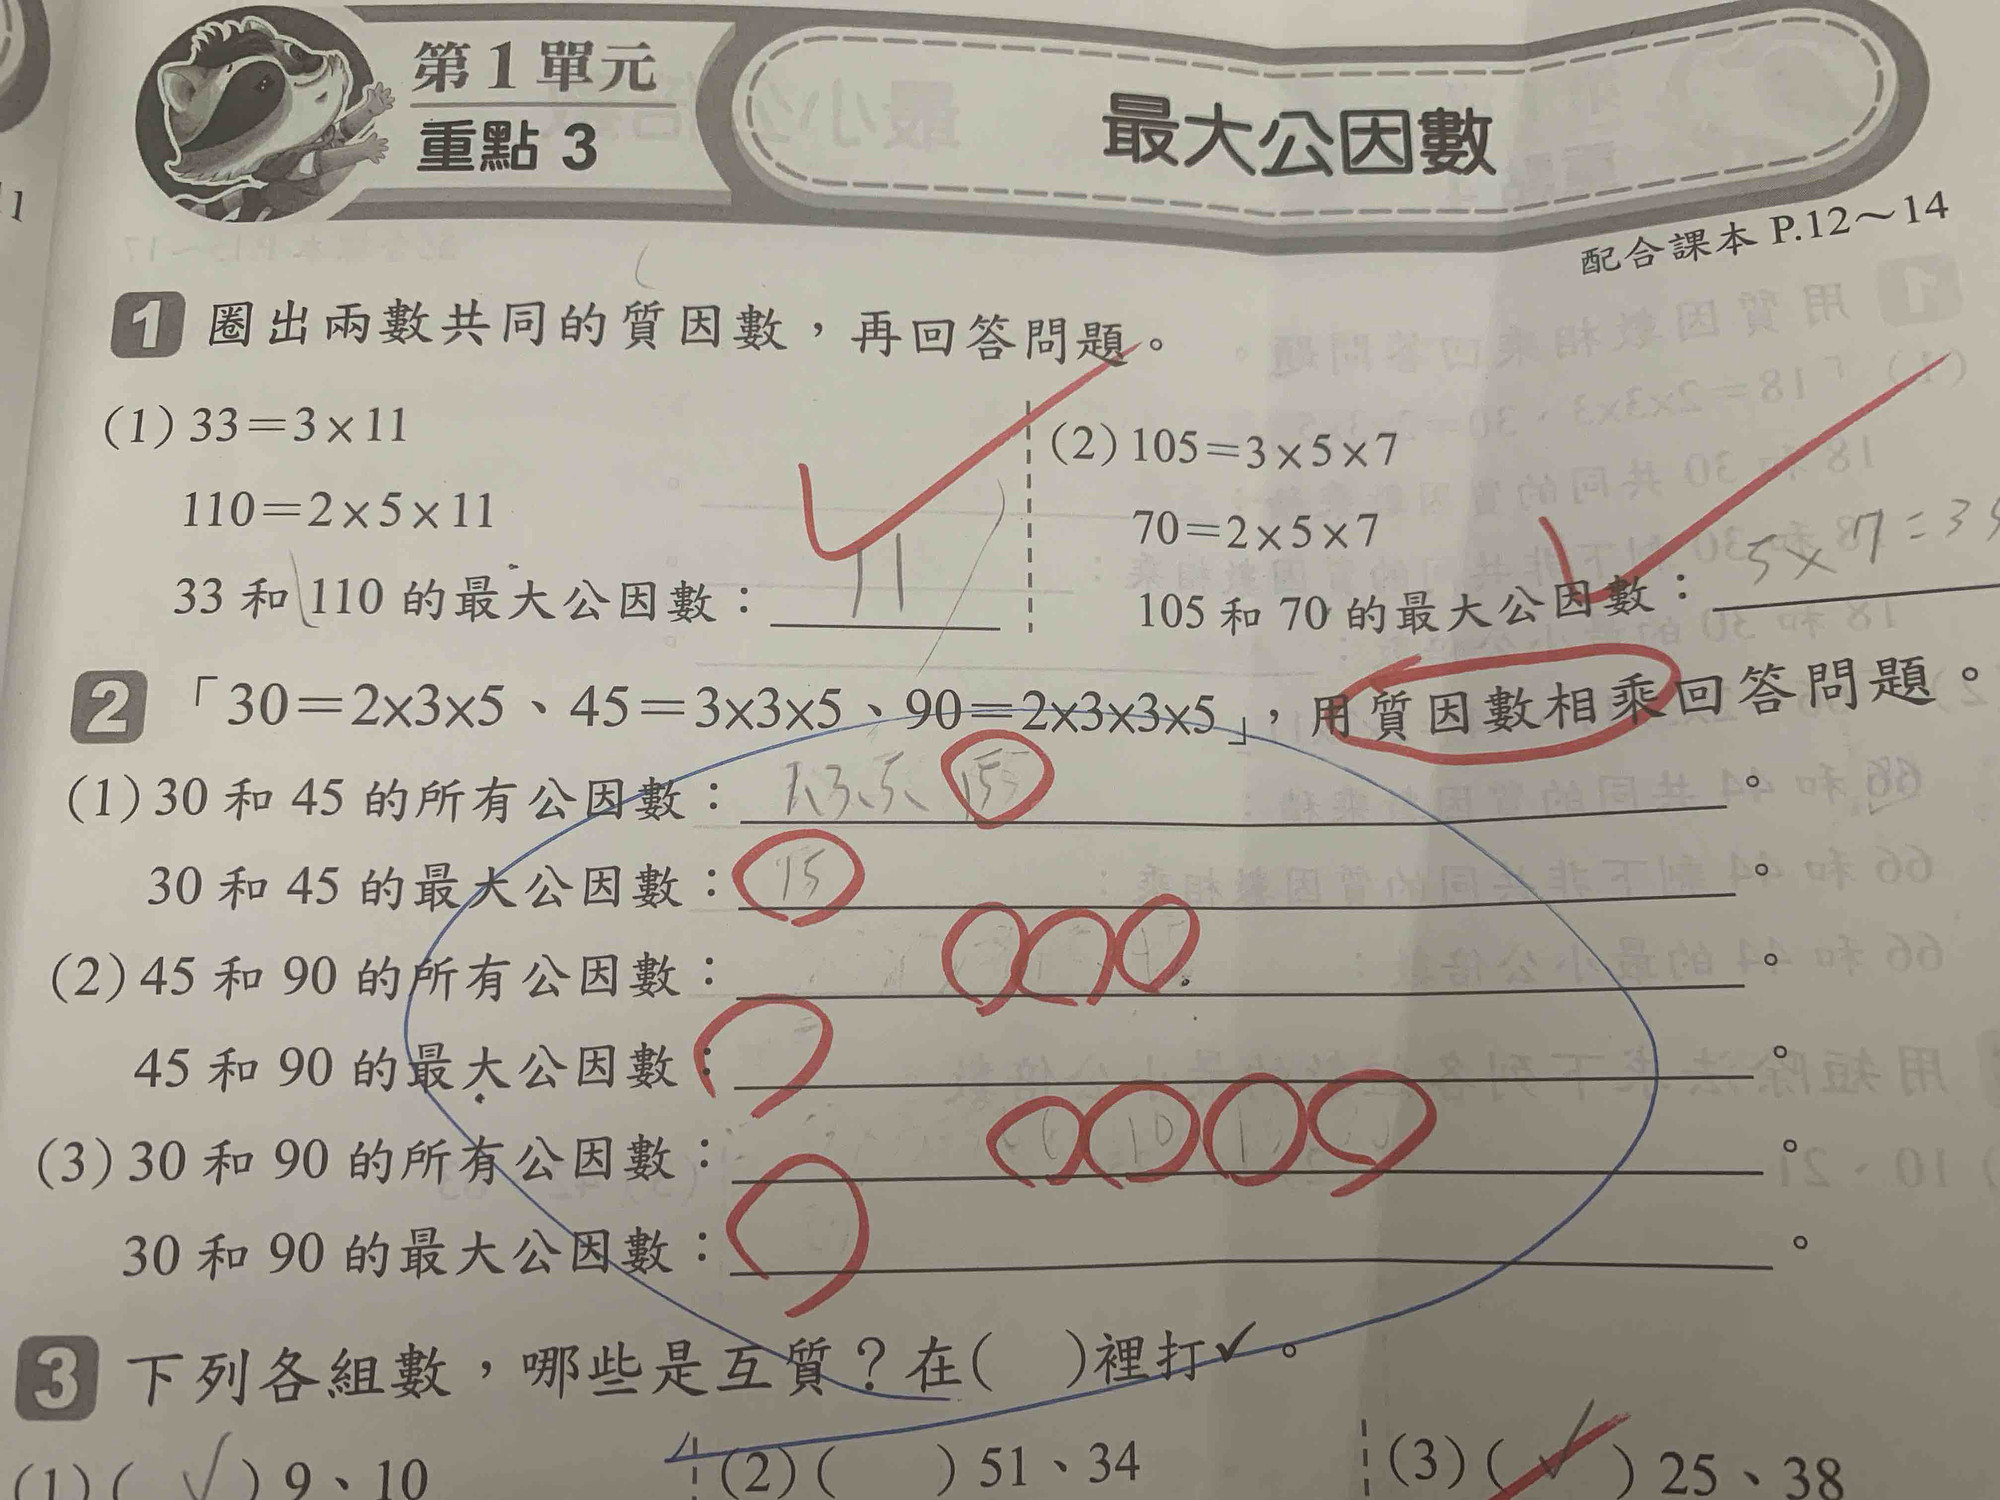 第1單元
重點 3
最大公因數
配合課本 P.12～14
1 圈出兩數共同的質因數，再回答問題。
(1) 33＝3×11
110＝2×5×11
33 和 110 的最大公因數： 11
(2) 105＝3×5×7
70＝2×5×7
105 和 70 的最大公因數： 5×7=35
2 「30＝2×3×5、45＝3×3×5、90＝2×3×3×5」，用質因數相乘回答問題。
(1) 30 和 45 的所有公因數： 1、3、5、15 。
30 和 45 的最大公因數： 15 。
(2) 45 和 90 的所有公因數： 。
45 和 90 的最大公因數： 。
(3) 30 和 90 的所有公因數： 10 。
30 和 90 的最大公因數： 。
3 下列各組數，哪些是互質？在( )裡打✓。
(1) ( ✓ ) 9、10
(2) ( ) 51、34
(3) ( ✓ ) 25、38